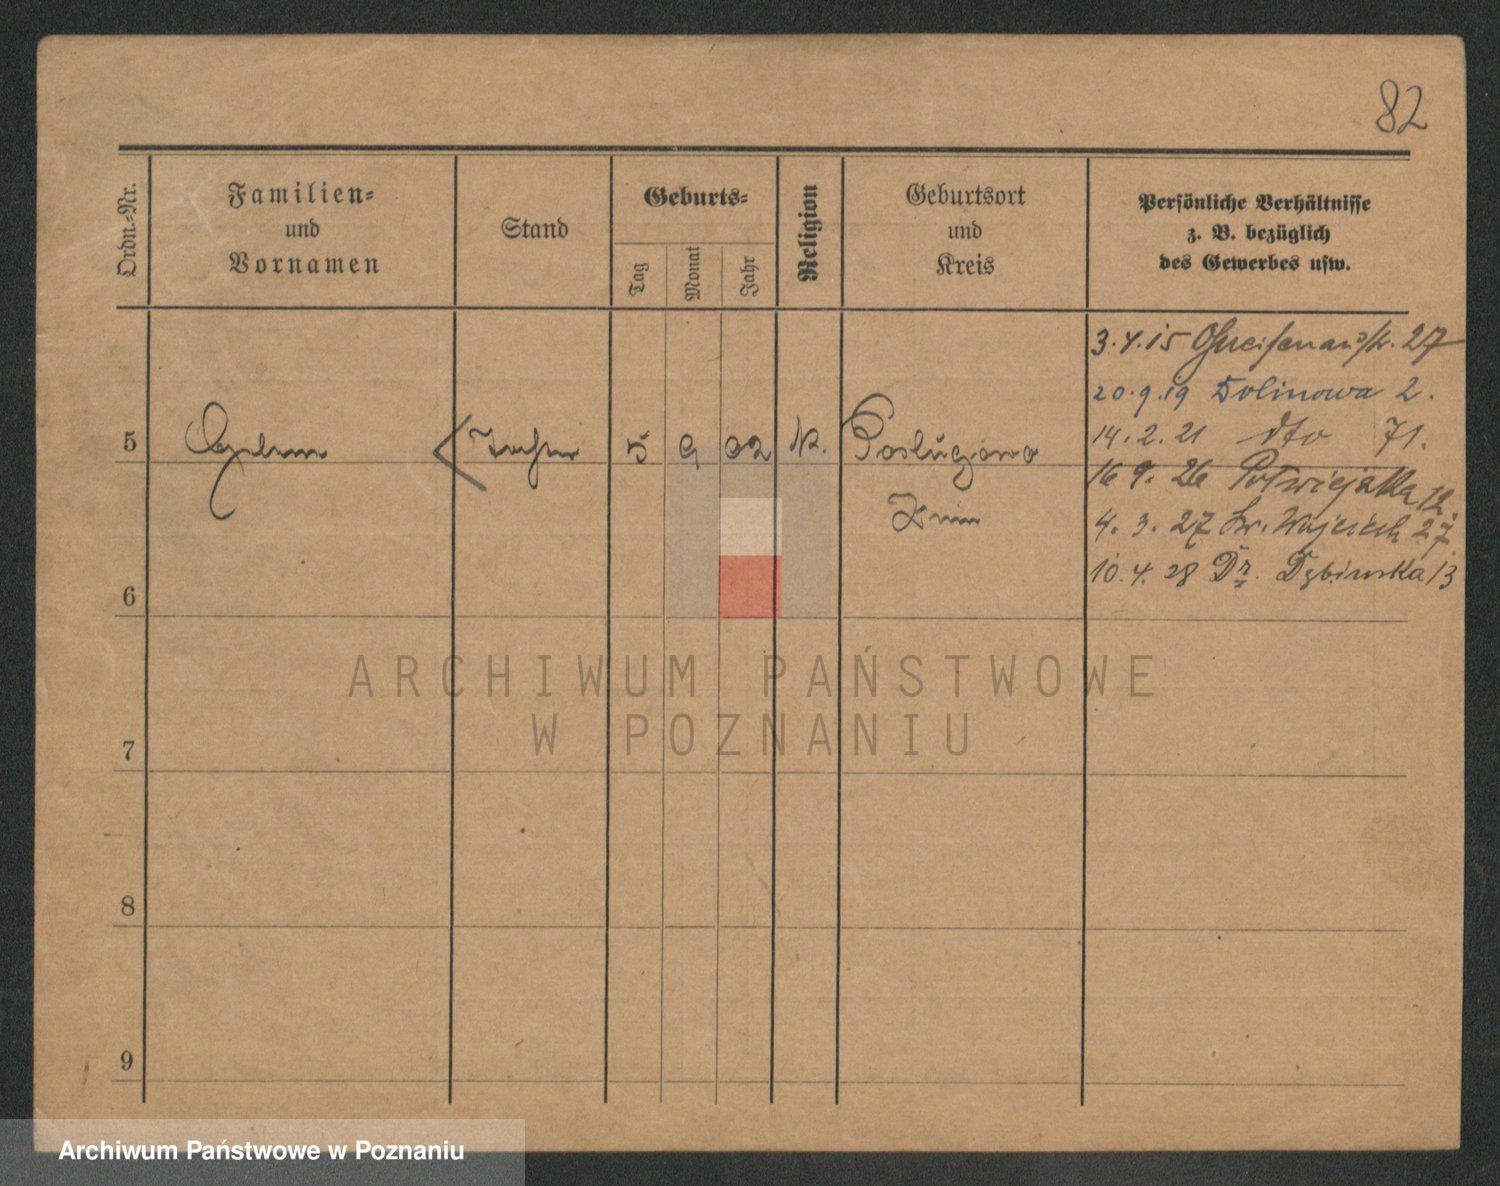 82
Ordn.-Nr.
Familien-
und
Vornamen
Stand
Geburts-
Tag
Monat
Jahr
Religion
Geburtsort
und
Kreis
Persönliche Verhältnisse
z. B. bezüglich
des Gewerbes usw.
3.4.15 Gneisenaustr. 27
20.9.19 Dolinowa 2.
14.2.21 dto 71.
5 Tochter 5 9 02 K. Posługowo
16 9. 26 Półwiejska 12.
Znin
4. 3. 27 Św. Wojciech 27
10. 4. 28 Dr. Dębińska 13
6
7
8
9
ARCHIWUM PAŃSTWOWE
W POZNANIU
Archiwum Państwowe w Poznaniu